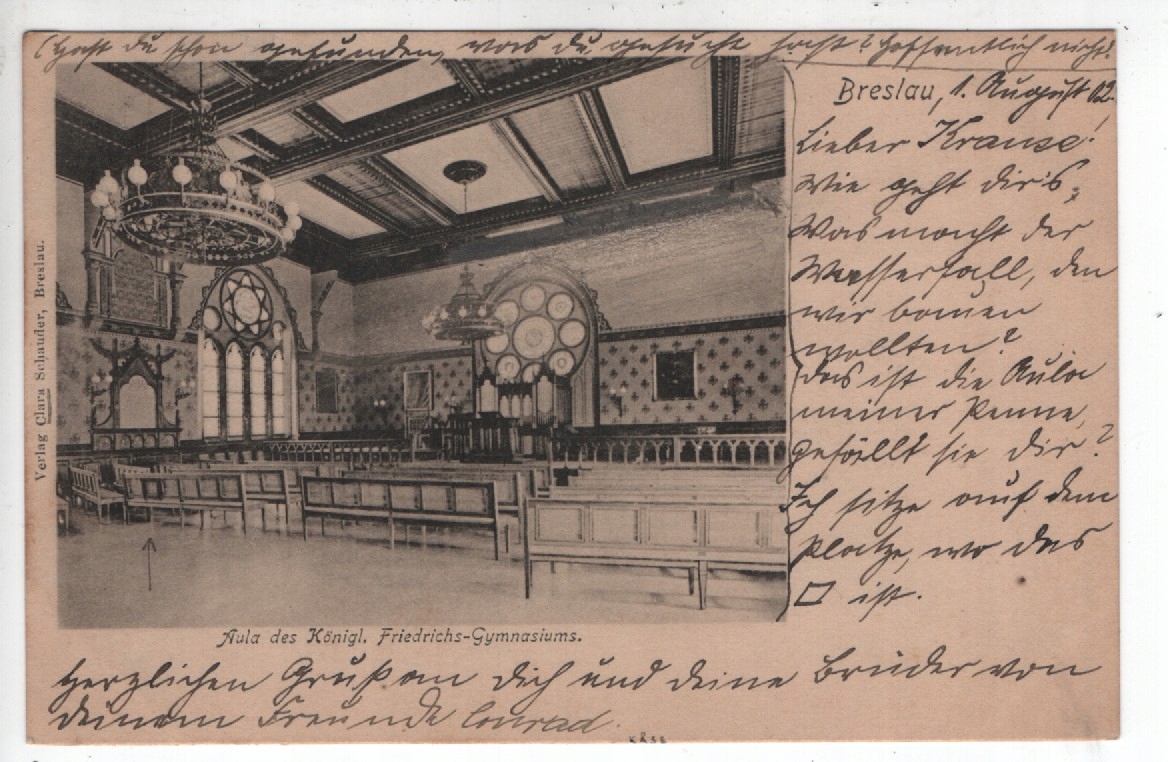 (Hast du schon gefunden, was du gesucht hast? Hoffentlich nicht!
Breslau, 1. August 02.
Lieber Krause!
Wie geht dir's,
Was macht der
Wasserfall, den
wir bauen
wollten?
Das ist die Aula
meiner Penne,
gefällt sie dir?
Ich sitze auf dem
Platze, wo das
□ ist.
Verlag Clara Schauder, Breslau.
Aula des Königl. Friedrichs-Gymnasiums.
Herzlichen Gruß an dich und deine Brüder von
deinem Freunde Conrad.